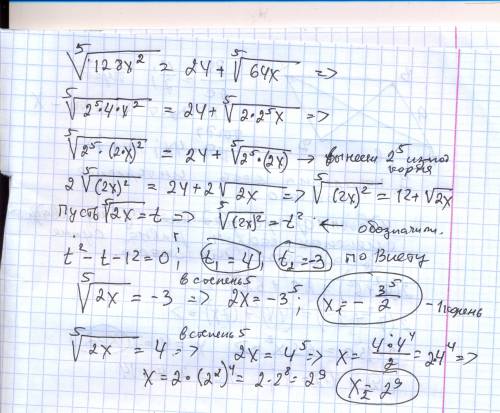 ⁵√128x² = 24 + ⁵√64x =>
⁵√2⁵·4·x² = 24 + ⁵√2·2⁵x =>
⁵√2⁵·(2·x)² = 24 + ⁵√2⁵·(2x) → вынесем 2⁵ из под корня
2 ⁵√(2x)² = 24 + 2√2x => ⁵√(2x)² = 12 + √2x
Пусть ⁵√2x = t => ⁵√(2x)² = t² ← обозначим.
t² - t - 12 = 0; t₁ = 4, t₂ = -3 по Виету
⁵√2x = -3 в степень 5 => 2x = -3⁵; x₁ = - 3⁵/2 - 1 корень
⁵√2x = 4 => в степень 5 2x = 4⁵ => x = 4·4⁴/2 = 2·4⁴ =>
x = 2·(2²)⁴ = 2·2⁸ = 2⁹ x₂ = 2⁹